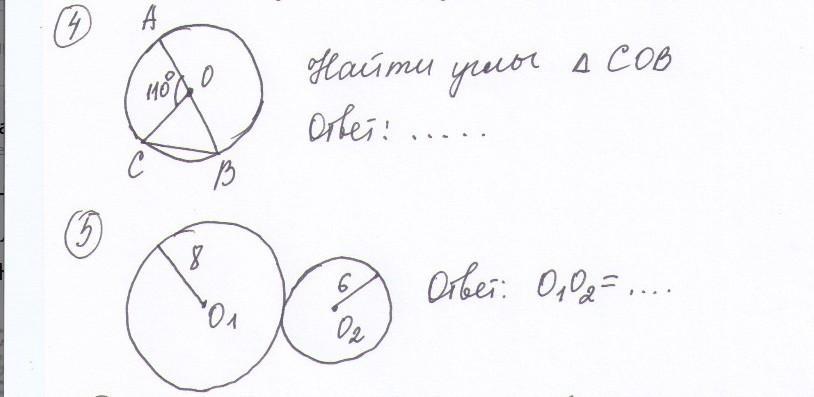 ④
A
110° O
C
B
Найти углы Δ COB
Ответ: .....
⑤
8
O1
6
O2
Ответ: O1O2= ....